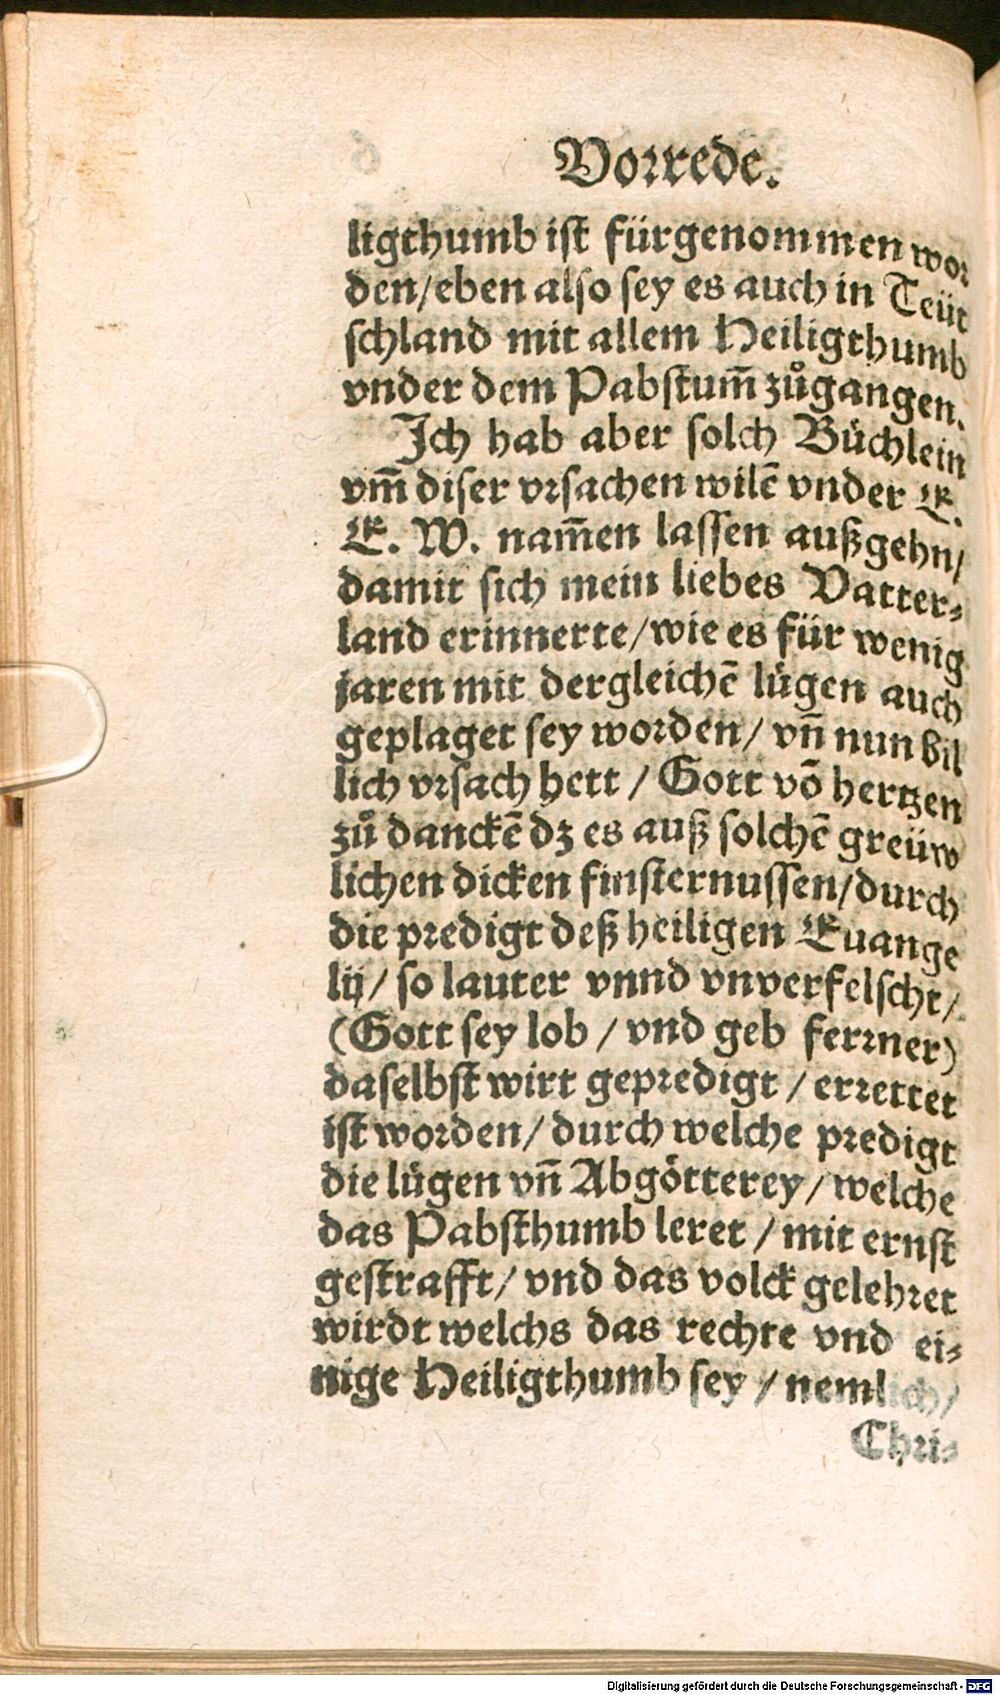 Vorrede.
ligthumb ist fürgenommen wor
den/eben also sey es auch in Teüt
schland mit allem Heiligthumb
vnder dem Pabstum̃ zůgangen.
Jch hab aber solch Büchlein
vm̃ diser vrsachen wilẽ vnder E.
E. W. nam̃en lassen außgehn/
damit sich mein liebes Vatter-
land erinnerte/wie es für wenig
jaren mit dergleichẽ lügen auch
geplaget sey worden/ vñ nun bil
lich vrsach hett / Gott võ hertzen
zů danckẽ dz es auß solchẽ greüw
lichen dicken finsternussen/durch
die predigt deß heiligen Euange
lij/ so lauter vnnd vnverfelscht/
(Gott sey lob / vnd geb ferrner)
daselbst wirt gepredigt / errettet
ist worden/ durch welche predigt
die lügen vñ Abgötterey/ welche
das Pabsthumb leret / mit ernst
gestrafft/ vnd das volck gelehret
wirdt welchs das rechte vnd ei-
nige Heiligthumb sey / nemlich/
Chri-
Digitalisierung gefördert durch die Deutsche Forschungsgemeinschaft - DFG